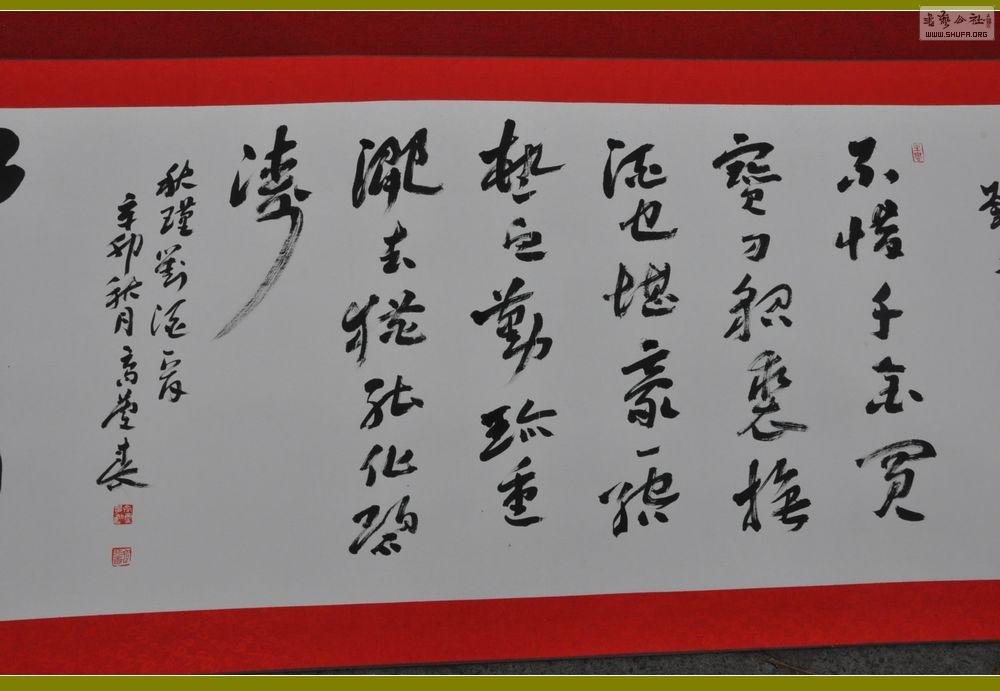 不惜千金買
寶刀貂裘換
酒也堪豪一腔
熱血勤珍重
灑去猶能化碧
濤
秋瑾對酒一首
辛卯秋月高
書藝公社
WWW.SHUFA.ORG